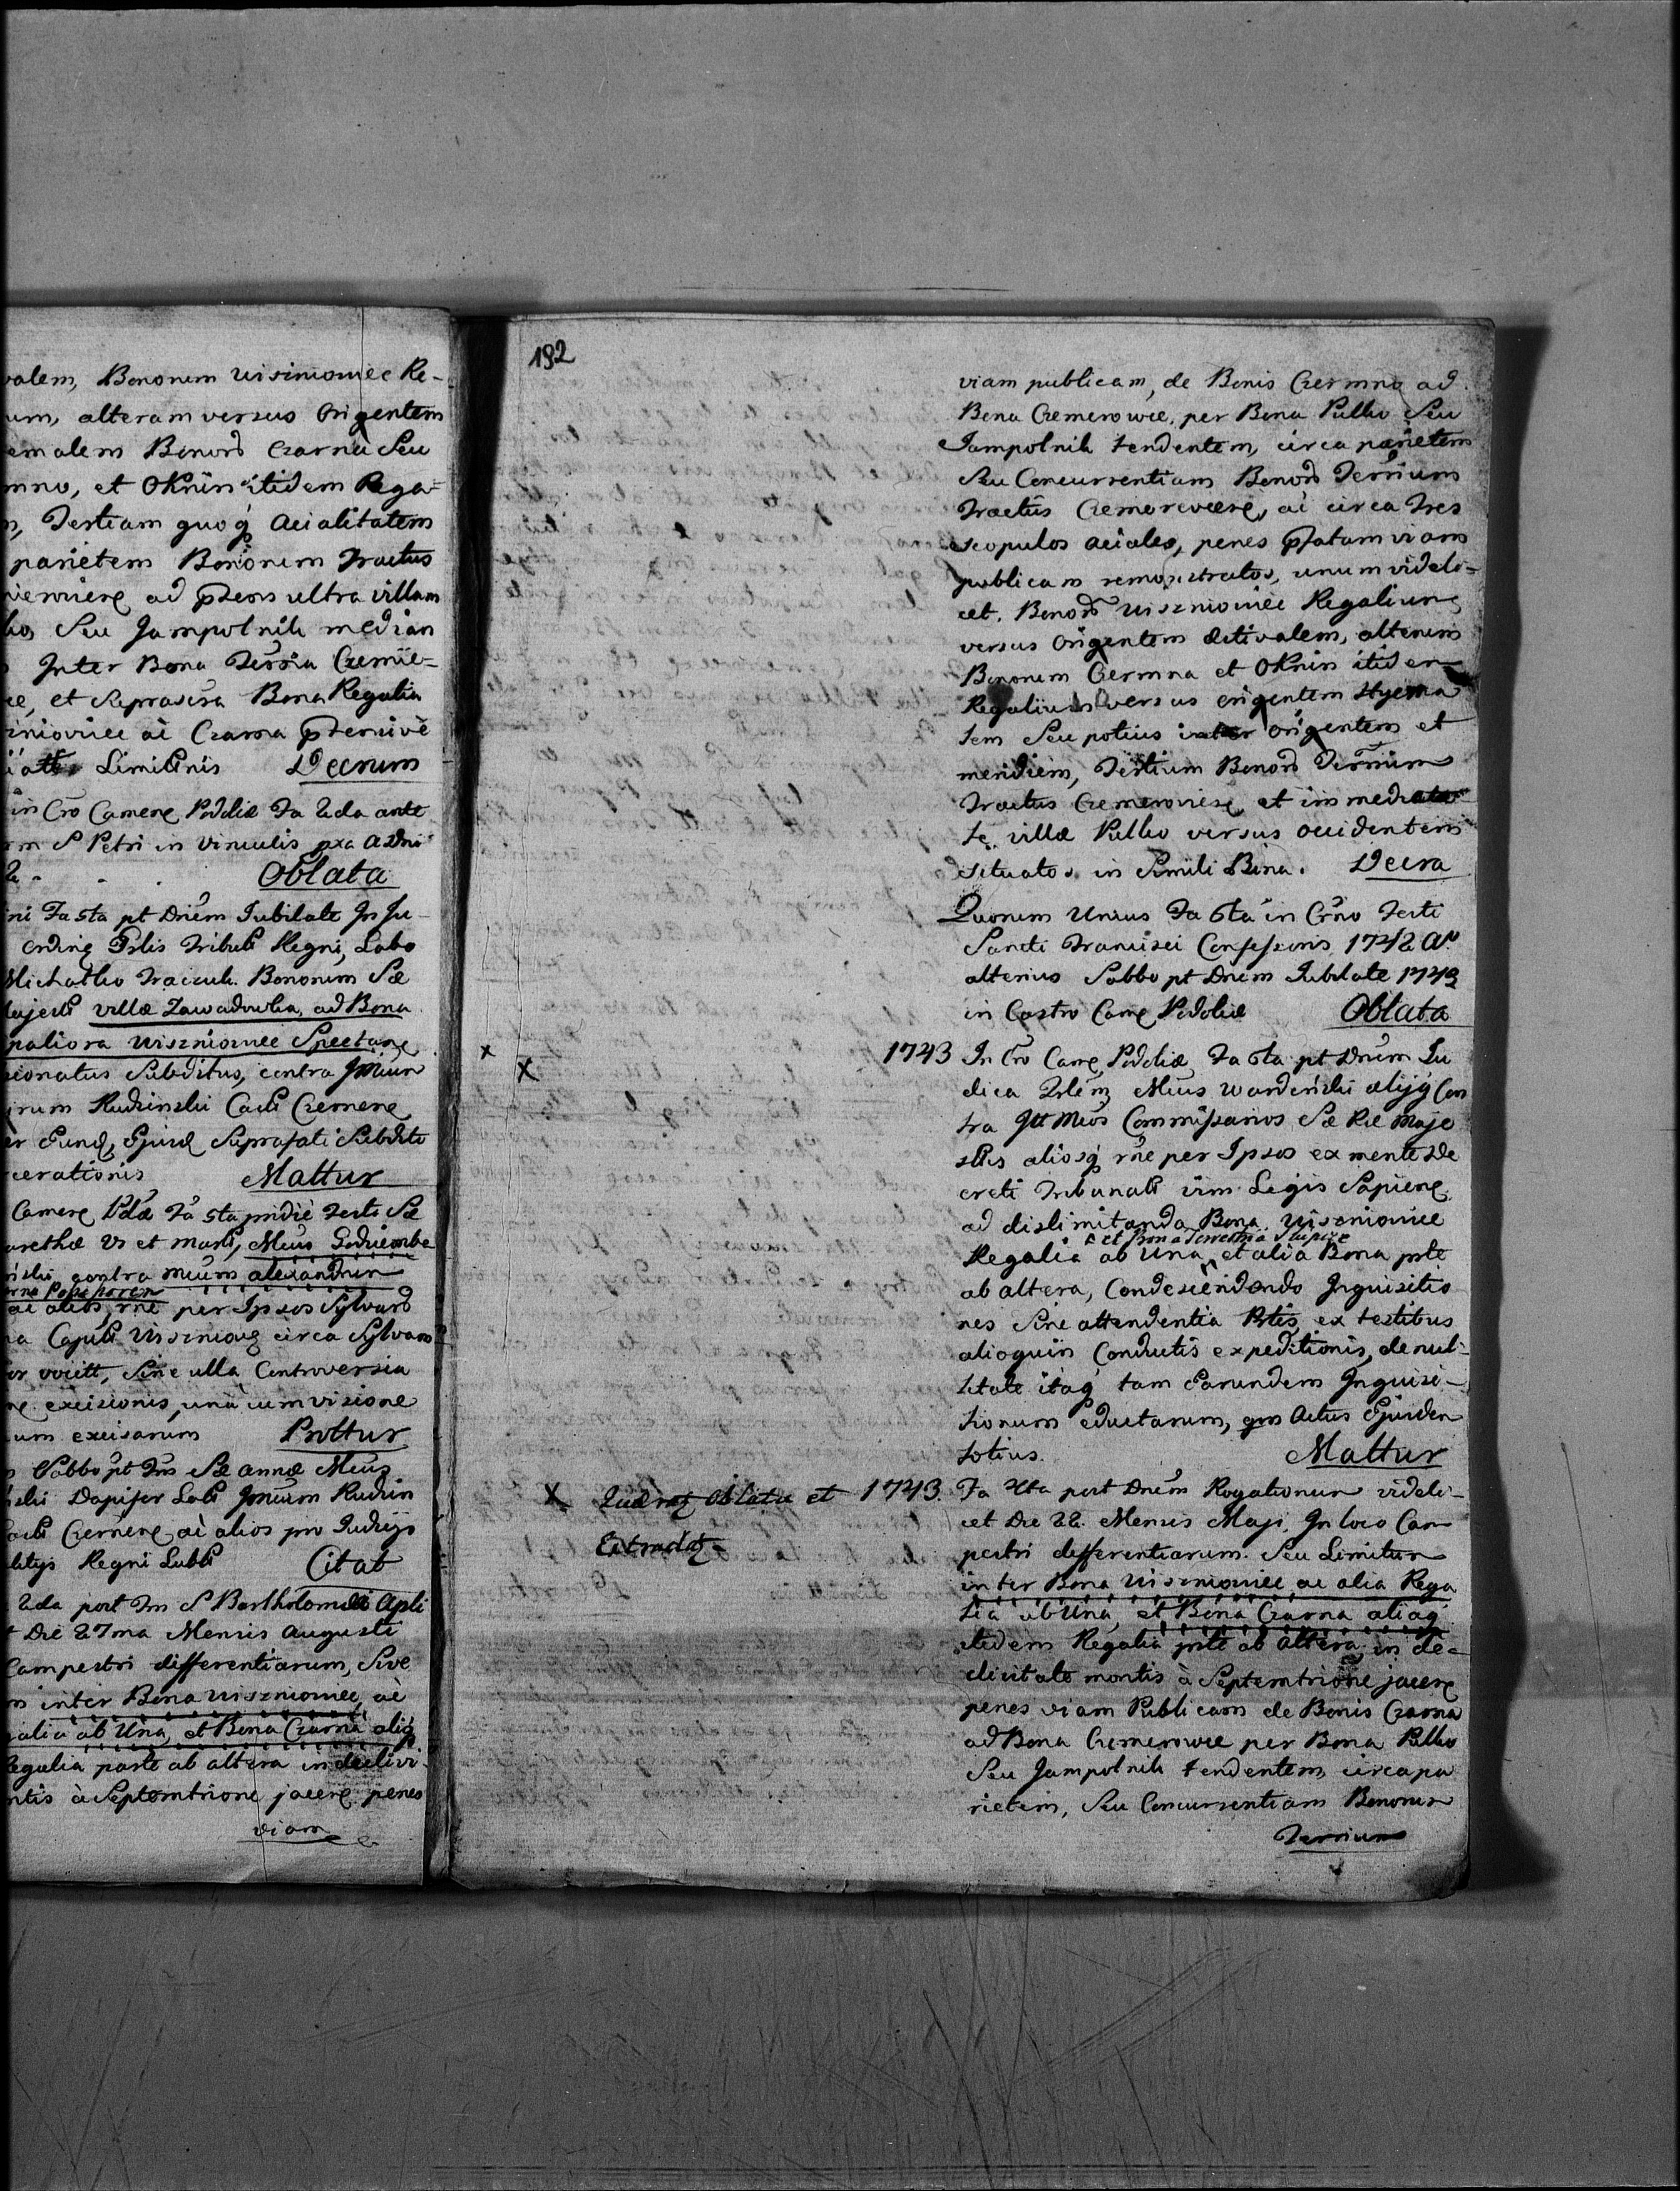 valem, Bonorum Uiszniowiec Re-
um, alteram versus Origentem
emalem Bonorũ Czarna Seu
mno, et Oknin itidem Rega-
, Tertiam quoqꝫ Acialitatem
parietem Bonorum Tractus
ad ultra villam
Seu Jampolnik
Inter Bona Terria Cremie-
et Suprascra Bona Regalia
ac Czarna
Limitinis Decrum
in Cro Camene Podoliæ Fa 2da ante
m S Petri in Vinculis pxa A Dni
2 - - . Oblata
Fa 5ta pt Dnem Jubilate In Ju-
ordine Tribuli Regni, Labo
Michatko Bonorum Sæ
Majesti villæ Zawadowka, ad Bona
Uiszniowiec Spectan
Subditus, contra
Rudzinski Casti Cremene
Suprafati Subditi
cerationis Mattur
Camene Pdæ Fa 5ta pridie Festi Sæ
arethæ V et Marti, Meus Godziembe
contra Meum Alexandrum
ac alios, rne per Ipsos Sylvarũ
circa Sylvam
sine ulla Controversia
excisionis, una cum visione
um excisarum Prottur
Sabbo pt Fm Sæ Annæ Meus
Dapifer Labi Rudzin
Cremene ac alios pro Judicijs
Regni Lubli Citao
2da post Fm S Bartholomæi Apli
Die 27ma Mensis Augusti
Campestri differentiarum, Sive
inter Bona Uiszniowiec, ac
galia ab Una, et Bona Czarna aliaqꝫ
Regalia parte ab altera in declivi-
ntis à Septemtrione jacen penes
viam
192
viam publicam, de Bonis Czermna ad
Bona Czemerowce, per Bona Pulko Seu
Jampolnik tendentem, circa parietem
Seu Concurrentiam Bonorũ Terrium
Tractus Czemerowcen, ac circa Tres
scopulos aciales, penes viam
publicam remonstratos, unum videli-
cet, Bonorũ Uiszniowiec Regalium
versus Origentem Æstivalem, alterum
Bonorum Czermna et Oknin itidem
Regalium versus origentem Hyema
lem Seu potius inter origentem et
meridiem, Tertium Bonorũ Terrium
Tractus Czemerowcen et immediata
te villæ Pulko versus occidentem
situatos in Simili Bina. Decra
Quorum Unius Fa 6ta in Crno Festi
Sancti Francisci Confessoris 1742 An
alterius Sabbo pt Dnem Jubilate 1743
in Castro Came Podoliæ Oblata
x
X
1743 In Cro Came Podoliæ Fa 6ta pt Dnem Ju
dica Qlem Meus Wardenski alijqꝫ Con
tra Meos Commissarios Sæ Ræ Maje
stis aliosqꝫ rne per Ipsos ex mente De
creti Tribunali vim Legis Sapien
ad dislimitanda Bona Uiszniowiec
et Bona Terrestria Slupice
Regalia ab Una, et alia Bona prte
ab altera, Condescendendo Inquisitio
nes Sine attendentia Prtis, ex testibus
alioquin Conductis expeditionis, de nul-
litate itaqꝫ tam Earundem Inquisi-
tionum eductarum, qm Actus Ejusdem
totius. Mattur
X Oblatæ et
Extradat
1743. Fa 4ta post Dnem Rogationum videli-
cet Die 22. Mensis Maji, In loco Cam
pestri differentiarum Seu Limitum
inter Bona Uiszniowiec ac alia Rega
lia ab Una, et Bona Czarna aliaqꝫ
itidem Regalia prte ab altera in de-
clivitate montis à Septemtrione jacen
penes viam Publicam de Bonis Czarna
ad Bona Czemerowce per Bona Pulko
Seu Jampolnik tendentem, circa pa
rietem, Seu Concurrentiam Bonorum
Terrium